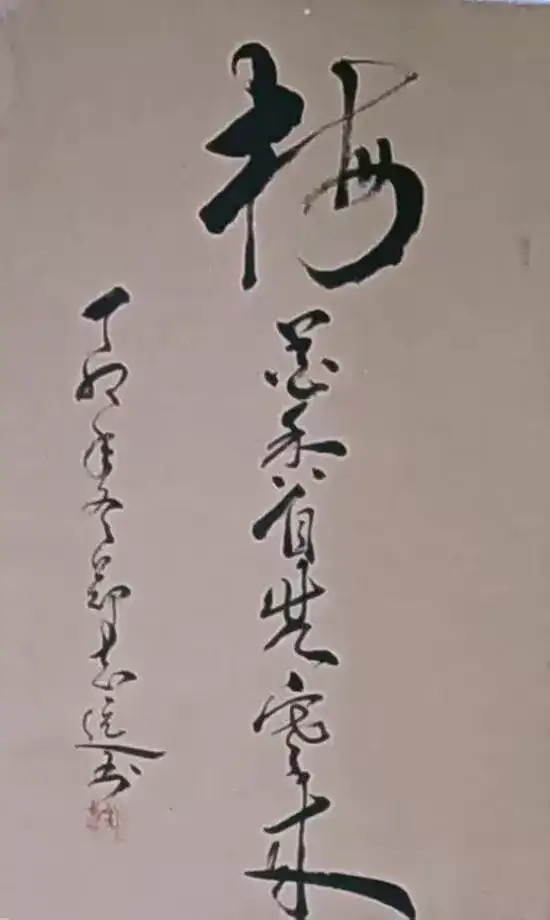 梅花香自苦寒来
丁卯年冬